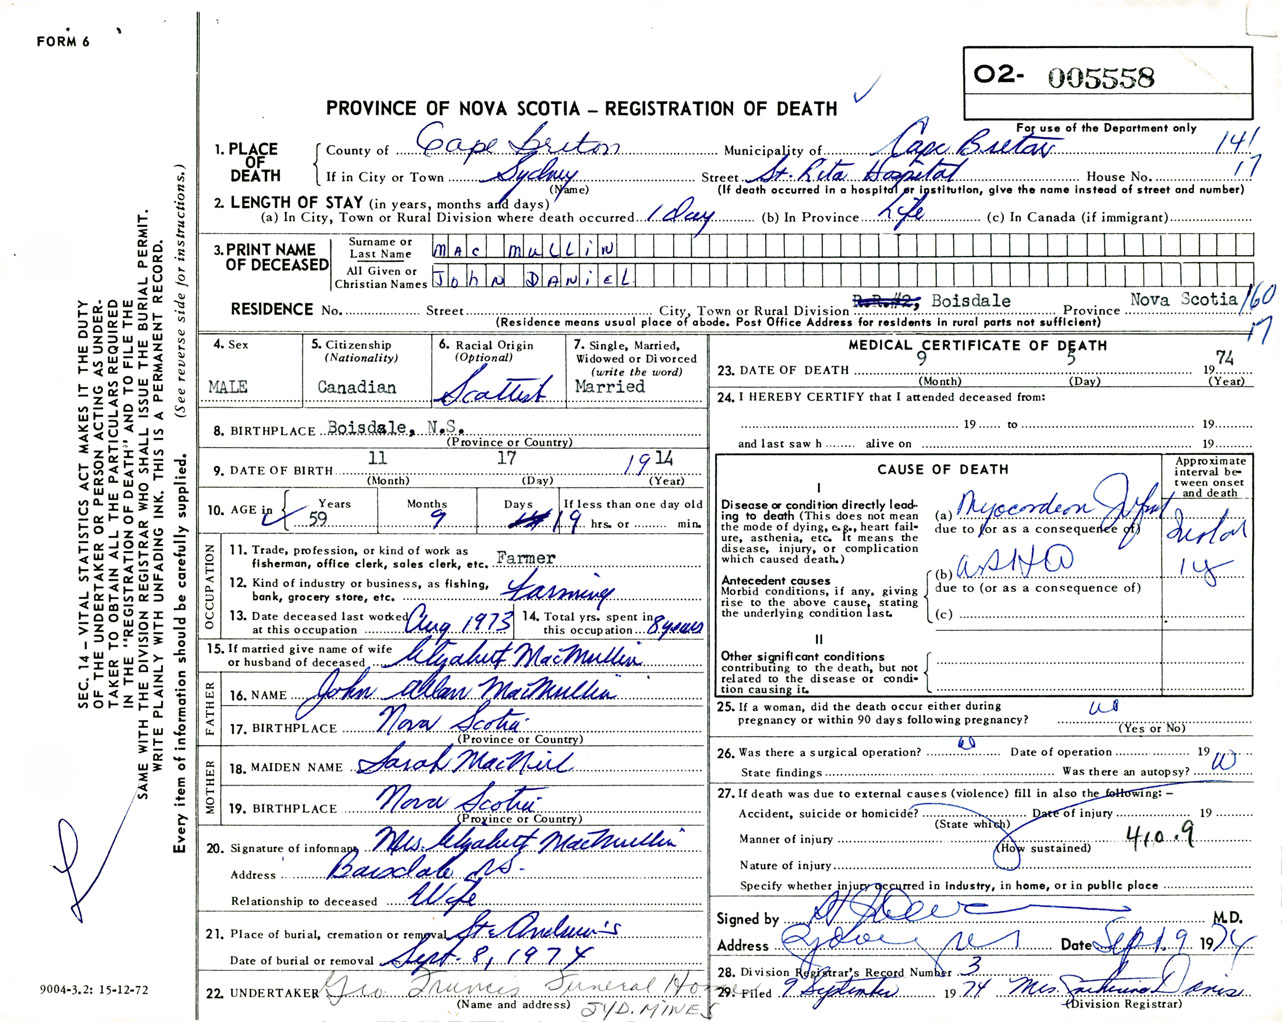 FORM 6
O2- 005558
PROVINCE OF NOVA SCOTIA – REGISTRATION OF DEATH
For use of the Department only
1. PLACE OF DEATH
County of Cape Breton Municipality of Cape Breton 141
If in City or Town Sydney Street St. Rita Hospital House No. 17
(Name) (If death occurred in a hospital or institution, give the name instead of street and number)
2. LENGTH OF STAY (in years, months and days)
(a) In City, Town or Rural Division where death occurred 1 day (b) In Province Life (c) In Canada (if immigrant)
3. PRINT NAME OF DECEASED
Surname or Last Name MAC MULLIN
All Given or Christian Names JOHN DANIEL
RESIDENCE No. Street City, Town or Rural Division R.R.#2, Boisdale Province Nova Scotia 160
(Residence means usual place of abode. Post Office Address for residents in rural parts not sufficient) 17
4. Sex MALE
5. Citizenship (Nationality) Canadian
6. Racial Origin (Optional) Scottish
7. Single, Married, Widowed or Divorced (write the word) Married
8. BIRTHPLACE Boisdale, N.S.
(Province or Country)
9. DATE OF BIRTH 11 17 1914
(Month) (Day) (Year)
10. AGE in Years 59 Months 9 Days 19 If less than one day old hrs. or min.
OCCUPATION
11. Trade, profession, or kind of work as fisherman, office clerk, sales clerk, etc. Farmer
12. Kind of industry or business, as fishing, bank, grocery store, etc. Farming
13. Date deceased last worked at this occupation Aug 1973
14. Total yrs. spent in this occupation 8 years
15. If married give name of wife or husband of deceased Elizabeth MacMullin
FATHER
16. NAME John Allan MacMullin
17. BIRTHPLACE Nova Scotia
(Province or Country)
MOTHER
18. MAIDEN NAME Sarah MacNeil
19. BIRTHPLACE Nova Scotia
(Province or Country)
20. Signature of informant Mrs. Elizabeth MacMullin
Address Boisdale NS.
Relationship to deceased Wife
21. Place of burial, cremation or removal St. Andrew's
Date of burial or removal Sept. 8, 1974
22. UNDERTAKER Geo Francis Funeral Home
(Name and address) SYD. MINES
MEDICAL CERTIFICATE OF DEATH
23. DATE OF DEATH 9 5 1974
(Month) (Day) (Year)
24. I HEREBY CERTIFY that I attended deceased from:
19 to 19
and last saw h alive on 19
CAUSE OF DEATH
Approximate interval between onset and death
I
Disease or condition directly leading to death (This does not mean the mode of dying, e.g., heart failure, asthenia, etc. It means the disease, injury, or complication which caused death.)
(a) Myocardial Infarct
due to (or as a consequence of)
Antecedent causes
Morbid conditions, if any, giving rise to the above cause, stating the underlying condition last.
(b) ASHD 1 y
due to (or as a consequence of)
(c)
II
Other significant conditions contributing to the death, but not related to the disease or condition causing it.
25. If a woman, did the death occur either during pregnancy or within 90 days following pregnancy?
(Yes or No)
26. Was there a surgical operation? Date of operation 19
State findings Was there an autopsy?
27. If death was due to external causes (violence) fill in also the following: –
Accident, suicide or homicide? Date of injury 19
(State which)
Manner of injury 410.9
(How sustained)
Nature of injury
Specify whether injury occurred in industry, in home, or in public place
Signed by M.D.
Address Sydney NS Date Sept 9 1974
28. Division Registrar's Record Number 3
29. Filed 9 September 1974 Mrs. Davis
(Division Registrar)
SEC. 14 – VITAL STATISTICS ACT MAKES IT THE DUTY
OF THE UNDERTAKER OR PERSON ACTING AS UNDER-
TAKER TO OBTAIN ALL THE PARTICULARS REQUIRED
IN THE "REGISTRATION OF DEATH" AND TO FILE THE
SAME WITH THE DIVISION REGISTRAR WHO SHALL ISSUE THE BURIAL PERMIT.
WRITE PLAINLY WITH UNFADING INK. THIS IS A PERMANENT RECORD.
Every item of information should be carefully supplied. (See reverse side for instructions.)
9004-3.2: 15-12-72